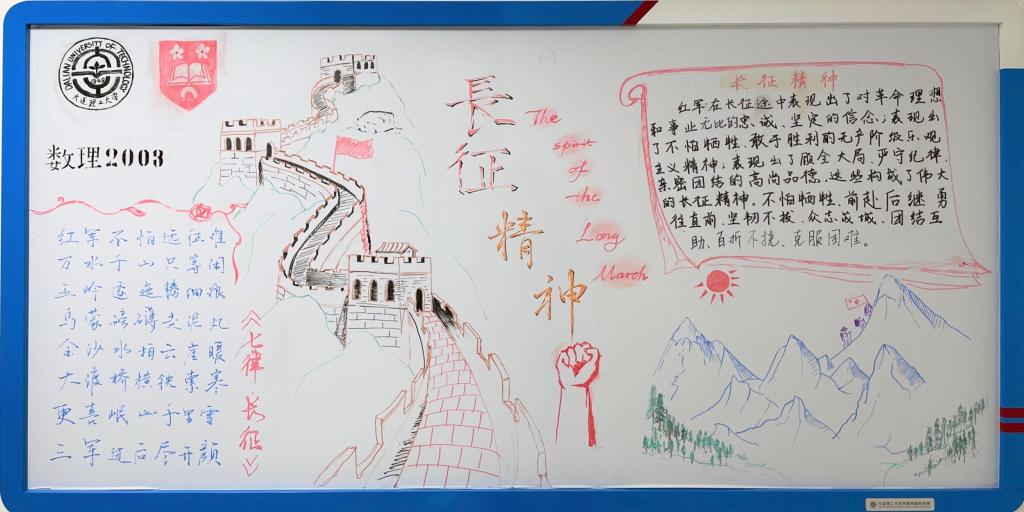 DALIAN UNIVERSITY OF TECHNOLOGY
1949
大连理工大学
数理2003
红军不怕远征难
万水千山只等闲
五岭逶迤腾细浪
乌蒙磅礴走泥丸
金沙水拍云崖暖
大渡桥横铁索寒
更喜岷山千里雪
三军过后尽开颜
《七律 长征》
長征精神
The
spirit
of
the
Long
March
长征精神
红军在长征途中表现出了对革命理想
和事业无比的忠诚、坚定的信念;表现出
了不怕牺牲、敢于胜利的无产阶级乐观
主义精神;表现出了顾全大局、严守纪律、
亲密团结的高尚品德。这些构成了伟大
的长征精神。不怕牺牲、前赴后继、勇
往直前、坚韧不拔、众志成城、团结互
助、百折不挠、克服困难。